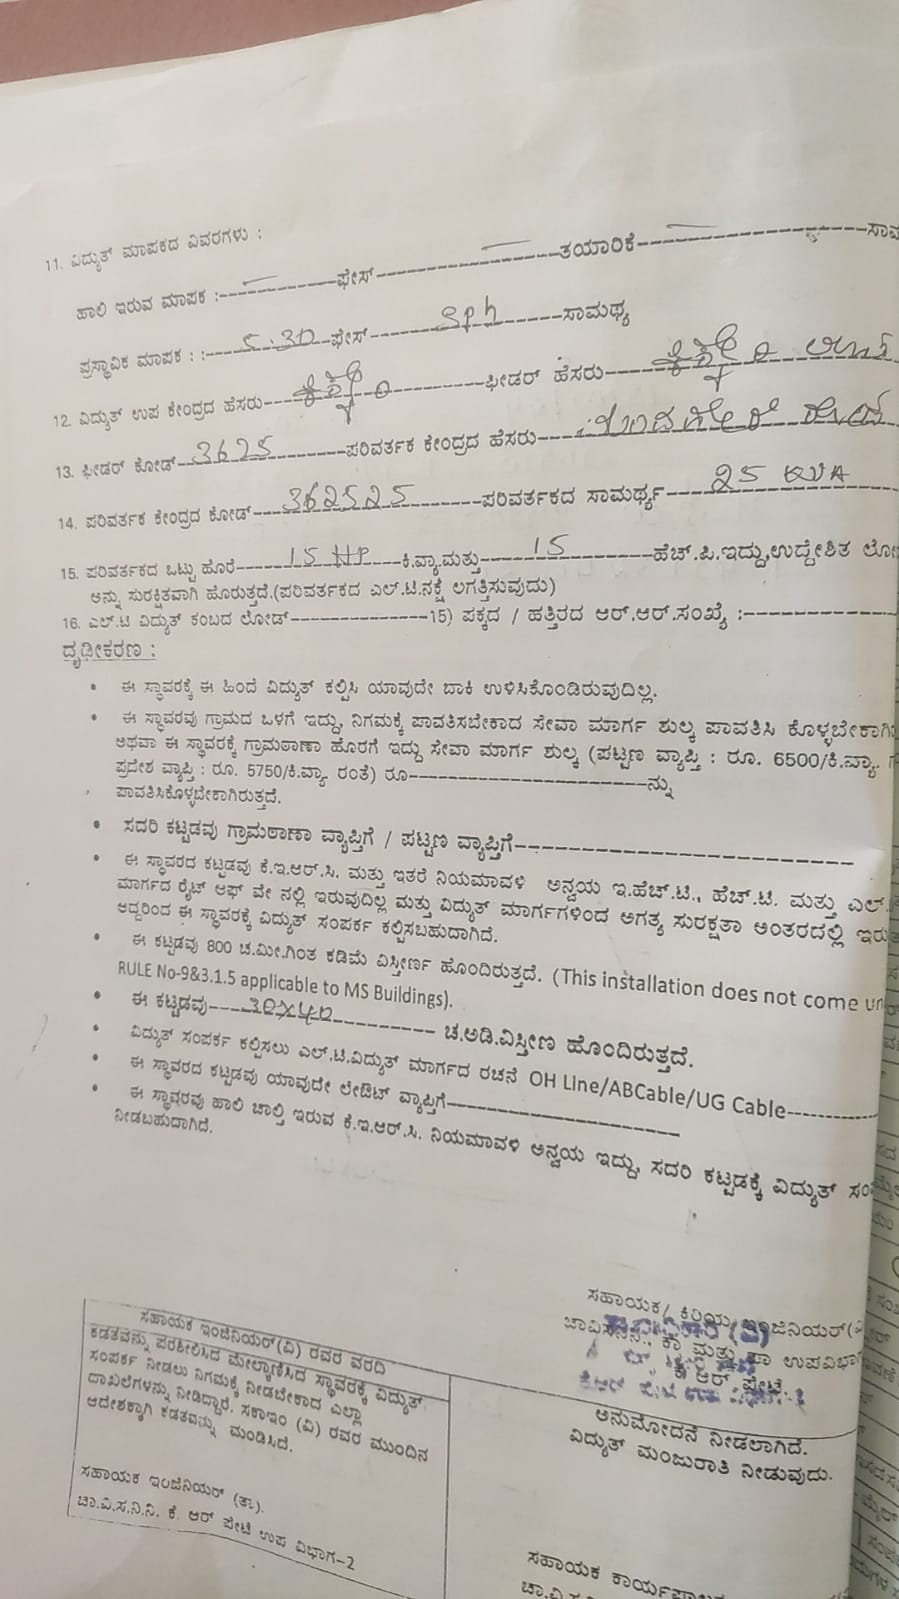 11. ವಿದ್ಯುತ್ ಮಾಪಕದ ವಿವರಗಳು :
ಹಾಲಿ ಇರುವ ಮಾಪಕ :-----------ಫೇಸ್-----------------ತಯಾರಿಕೆ--------------------ಸಾಮ
ಪ್ರಸ್ಥಾವಿಕ ಮಾಪಕ : :---5-30---ಫೇಸ್------Sph------ಸಾಮಥ್ಯ
12. ವಿದ್ಯುತ್ ಉಪ ಕೇಂದ್ರದ ಹೆಸರು------------ಫೀಡರ್ ಹೆಸರು------------
13. ಫೀಡರ್ ಕೋಡ್---3625---------ಪರಿವರ್ತಕ ಕೇಂದ್ರದ ಹೆಸರು------------
14. ಪರಿವರ್ತಕ ಕೇಂದ್ರದ ಕೋಡ್---362525---------ಪರಿವರ್ತಕದ ಸಾಮರ್ಥ್ಯ-----25 KVA
15. ಪರಿವರ್ತಕದ ಒಟ್ಟು ಹೊರೆ------15 HP----ಕಿ.ವ್ಯಾ.ಮತ್ತು------15---------ಹೆಚ್.ಪಿ.ಇದ್ದು,ಉದ್ದೇಶಿತ ಲೋ
ಅನ್ನು ಸುರಕ್ಷಿತವಾಗಿ ಹೊರುತ್ತದೆ.(ಪರಿವರ್ತಕದ ಎಲ್.ಟಿ.ನಕ್ಷೆ ಲಗತ್ತಿಸುವುದು)
16. ಎಲ್.ಟಿ ವಿದ್ಯುತ್ ಕಂಬದ ಲೋಡ್--------------15) ಪಕ್ಕದ / ಹತ್ತಿರದ ಆರ್.ಆರ್.ಸಂಖ್ಯೆ :---------------
ದೃಢೀಕರಣ :
• ಈ ಸ್ಥಾವರಕ್ಕೆ ಈ ಹಿಂದೆ ವಿದ್ಯುತ್ ಕಲ್ಪಿಸಿ ಯಾವುದೇ ಬಾಕಿ ಉಳಿಸಿಕೊಂಡಿರುವುದಿಲ್ಲ.
• ಈ ಸ್ಥಾವರವು ಗ್ರಾಮದ ಒಳಗೆ ಇದ್ದು, ನಿಗಮಕ್ಕೆ ಪಾವತಿಸಬೇಕಾದ ಸೇವಾ ಮಾರ್ಗ ಶುಲ್ಕ ಪಾವತಿಸಿ ಕೊಳ್ಳಬೇಕಾಗಿ
ಅಥವಾ ಈ ಸ್ಥಾವರಕ್ಕೆ ಗ್ರಾಮಠಾಣಾ ಹೊರಗೆ ಇದ್ದು ಸೇವಾ ಮಾರ್ಗ ಶುಲ್ಕ (ಪಟ್ಟಣ ವ್ಯಾಪ್ತಿ : ರೂ. 6500/ಕಿ.ವ್ಯಾ.
ಪ್ರದೇಶ ವ್ಯಾಪ್ತಿ : ರೂ. 5750/ಕಿ.ವ್ಯಾ ರಂತೆ) ರೂ--------------------------ನ್ನು
ಪಾವತಿಸಿಕೊಳ್ಳಬೇಕಾಗಿರುತ್ತದೆ.
• ಸದರಿ ಕಟ್ಟಡವು ಗ್ರಾಮಠಾಣಾ ವ್ಯಾಪ್ತಿಗೆ / ಪಟ್ಟಣ ವ್ಯಾಪ್ತಿಗೆ----------------------------
• ಈ ಸ್ಥಾವರದ ಕಟ್ಟಡವು ಕೆ.ಇ.ಆರ್.ಸಿ. ಮತ್ತು ಇತರೆ ನಿಯಮಾವಳಿ ಅನ್ವಯ ಇ.ಹೆಚ್.ಟಿ., ಹೆಚ್.ಟಿ. ಮತ್ತು ಎಲ್.
ಮಾರ್ಗದ ರೈಟ್ ಆಫ್ ವೇ ನಲ್ಲಿ ಇರುವುದಿಲ್ಲ ಮತ್ತು ವಿದ್ಯುತ್ ಮಾರ್ಗಗಳಿಂದ ಅಗತ್ಯ ಸುರಕ್ಷತಾ ಅಂತರದಲ್ಲಿ ಇರು
ಆದ್ದರಿಂದ ಈ ಸ್ಥಾವರಕ್ಕೆ ವಿದ್ಯುತ್ ಸಂಪರ್ಕ ಕಲ್ಪಿಸಬಹುದಾಗಿದೆ.
• ಈ ಕಟ್ಟಡವು 800 ಚ.ಮೀ.ಗಿಂತ ಕಡಿಮೆ ವಿಸ್ತೀರ್ಣ ಹೊಂದಿರುತ್ತದೆ. (This installation does not come un
RULE No-9&3.1.5 applicable to MS Buildings).
• ಈ ಕಟ್ಟಡವು----30x40---------- ಚ.ಅಡಿ.ವಿಸ್ತೀಣ ಹೊಂದಿರುತ್ತದೆ.
• ವಿದ್ಯುತ್ ಸಂಪರ್ಕ ಕಲ್ಪಿಸಲು ಎಲ್.ಟಿ.ವಿದ್ಯುತ್ ಮಾರ್ಗದ ರಚನೆ OH Line/ABCable/UG Cable-----------
• ಈ ಸ್ಥಾವರದ ಕಟ್ಟಡವು ಯಾವುದೇ ಲೇಔಟ್ ವ್ಯಾಪ್ತಿಗೆ--------------------------
• ಈ ಸ್ಥಾವರವು ಹಾಲಿ ಚಾಲ್ತಿ ಇರುವ ಕೆ.ಇ.ಆರ್.ಸಿ. ನಿಯಮಾವಳಿ ಅನ್ವಯ ಇದ್ದು, ಸದರಿ ಕಟ್ಟಡಕ್ಕೆ ವಿದ್ಯುತ್ ಸಂ
ನೀಡಬಹುದಾಗಿದೆ.
ಸಹಾಯಕ/ ಕಿರಿಯ ಇಂಜಿನಿಯರ್(ವಿ
ಚಾವಿಸನಿನಿ., ಕಾ ಮತ್ತು ಪಾ ಉಪವಿಭಾ
ಕೆ ಆರ್ ಪೇಟೆ.
ಸಹಾಯಕ ಇಂಜಿನಿಯರ್(ವಿ) ರವರ ವರದಿ
ಕಡತವನ್ನು ಪರಿಶೀಲಿಸಿದೆ ಮೇಲ್ಕಾಣಿಸಿದ ಸ್ಥಾವರಕ್ಕೆ ವಿದ್ಯುತ್
ಸಂಪರ್ಕ ನೀಡಲು ನಿಗಮಕ್ಕೆ ನೀಡಬೇಕಾದ ಎಲ್ಲಾ
ದಾಖಲೆಗಳನ್ನು ನೀಡಿದ್ದಾರೆ. ಸಕಾಇಂ (ವಿ) ರವರ ಮುಂದಿನ
ಆದೇಶಕ್ಕಾಗಿ ಕಡತವನ್ನು ಮಂಡಿಸಿದೆ.
ಸಹಾಯಕ ಇಂಜಿನಿಯರ್ (ತಾ).
ಚಾ.ವಿ.ಸ.ನಿ.ನಿ. ಕೆ. ಆರ್ ಪೇಟೆ ಉಪ ವಿಭಾಗ-2
ಅನುಮೋದನೆ ನೀಡಲಾಗಿದೆ.
ವಿದ್ಯುತ್ ಮಂಜುರಾತಿ ನೀಡುವುದು.
ಸಹಾಯಕ